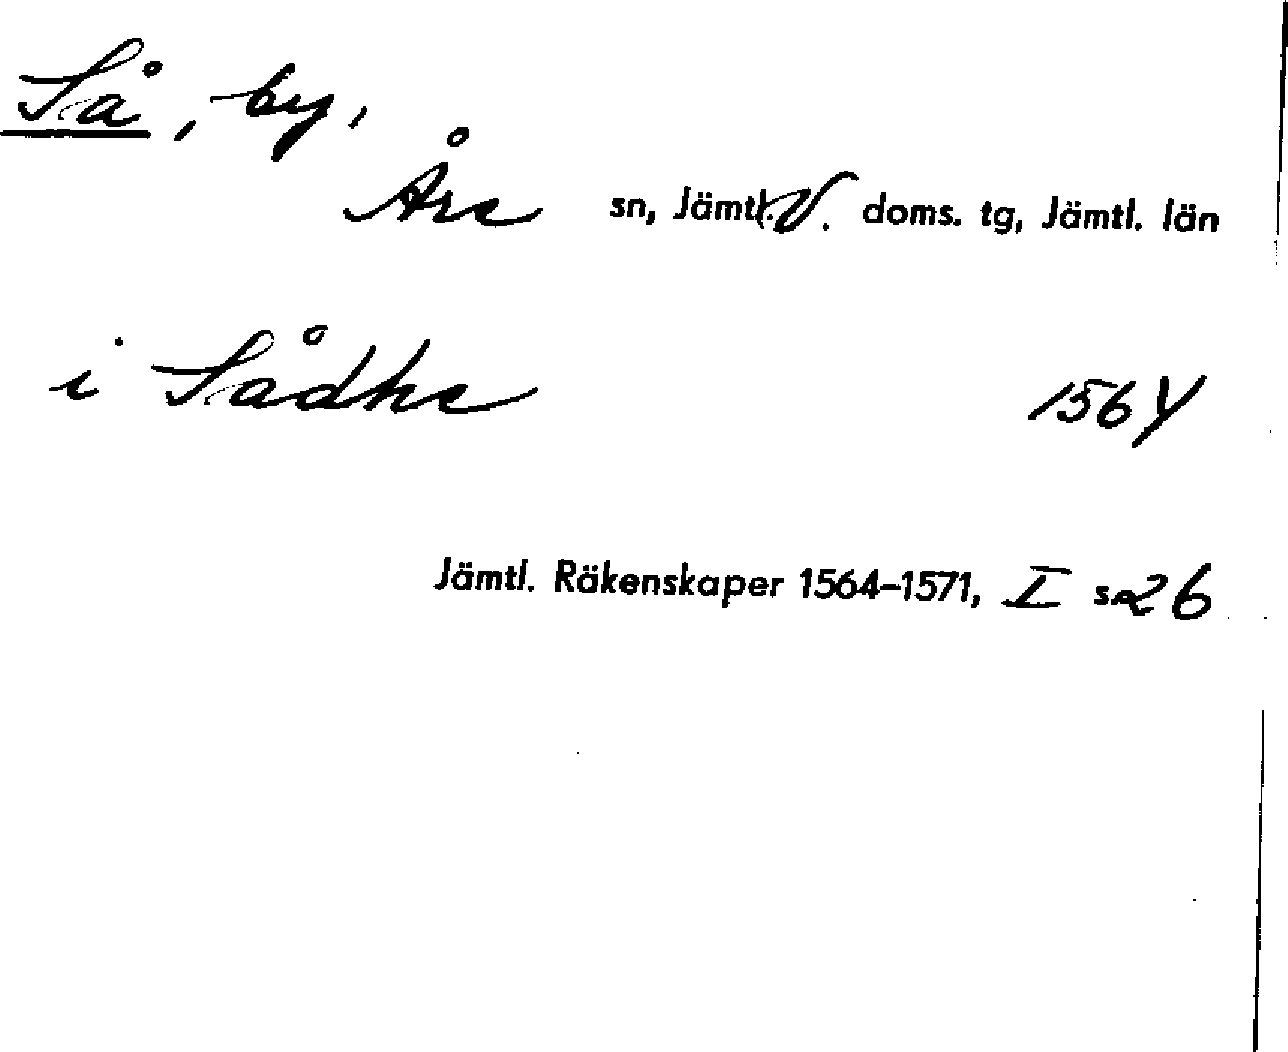 Så, by,
Åre sn, Jämtl. V. doms. tg, Jämtl. län
i Sådhe 1564
Jämtl. Räkenskaper 1564–1571, I s. 26